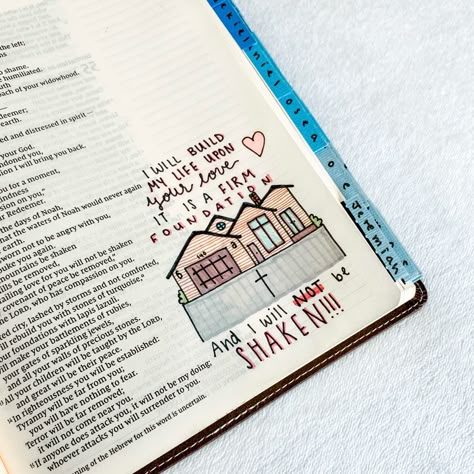 the left;
to shame.
be humiliated.
uth
oach of your widowhood.
edeemer;
earth.
ed and distressed in spirit—
your God.
andoned you,
ion I will bring you back.
you for a moment,
kindness
sion on you,"
ur Redeemer.
the days of Noah,
hat the waters of Noah would never again
e earth.
worn not to be angry with you,
buke you again.
ountains be shaken
ills be removed,
failing love for you will not be shaken
covenant of peace be removed,"
LORD, who has compassion on you.
cted city, lashed by storms and not comforted,
will rebuild you with stones of turquoise,
our foundations with lapis lazuli.
will make your battlements of rubies,
your gates of sparkling jewels,
and all your walls of precious stones.
All your children will be taught by the LORD,
and great will be their peace.
In righteousness you will be established:
Tyranny will be far from you;
you will have nothing to fear.
Terror will be far removed;
it will not come near you.
"If anyone does attack you, it will not be my doing;
whoever attacks you will surrender to you.
ning of the Hebrew for this word is uncertain.
I WILL BUILD
MY LIFE UPON
your love
IT IS A FIRM
FOUNDATION
And I will NOT be
SHAKEN!!!